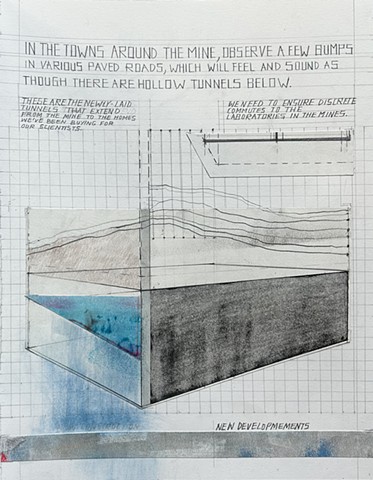 IN THE TOWNS AROUND THE MINE, OBSERVE A FEW BUMPS
IN VARIOUS PAVED ROADS, WHICH WILL FEEL AND SOUND AS
THOUGH THERE ARE HOLLOW TUNNELS BELOW.
THESE ARE THE NEWLY-LAID
TUNNELS THAT EXTEND
FROM THE MINE TO THE HOMES
WE'VE BEEN BUYING FOR
OUR SCIENTISTS.
WE NEED TO ENSURE DISCRETE
COMMUTES TO THE
LABORATORIES IN THE MINES.
NEW DEVELOPMEMENTS